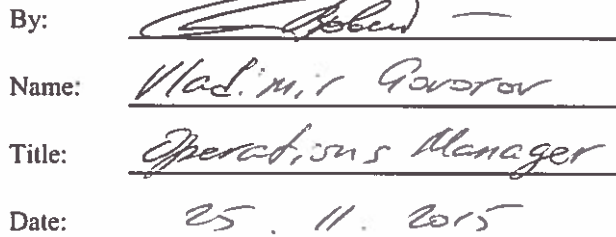 By:
Name: Vladimir Govorov
Title: Operations Manager
Date: 25. 11. 2015